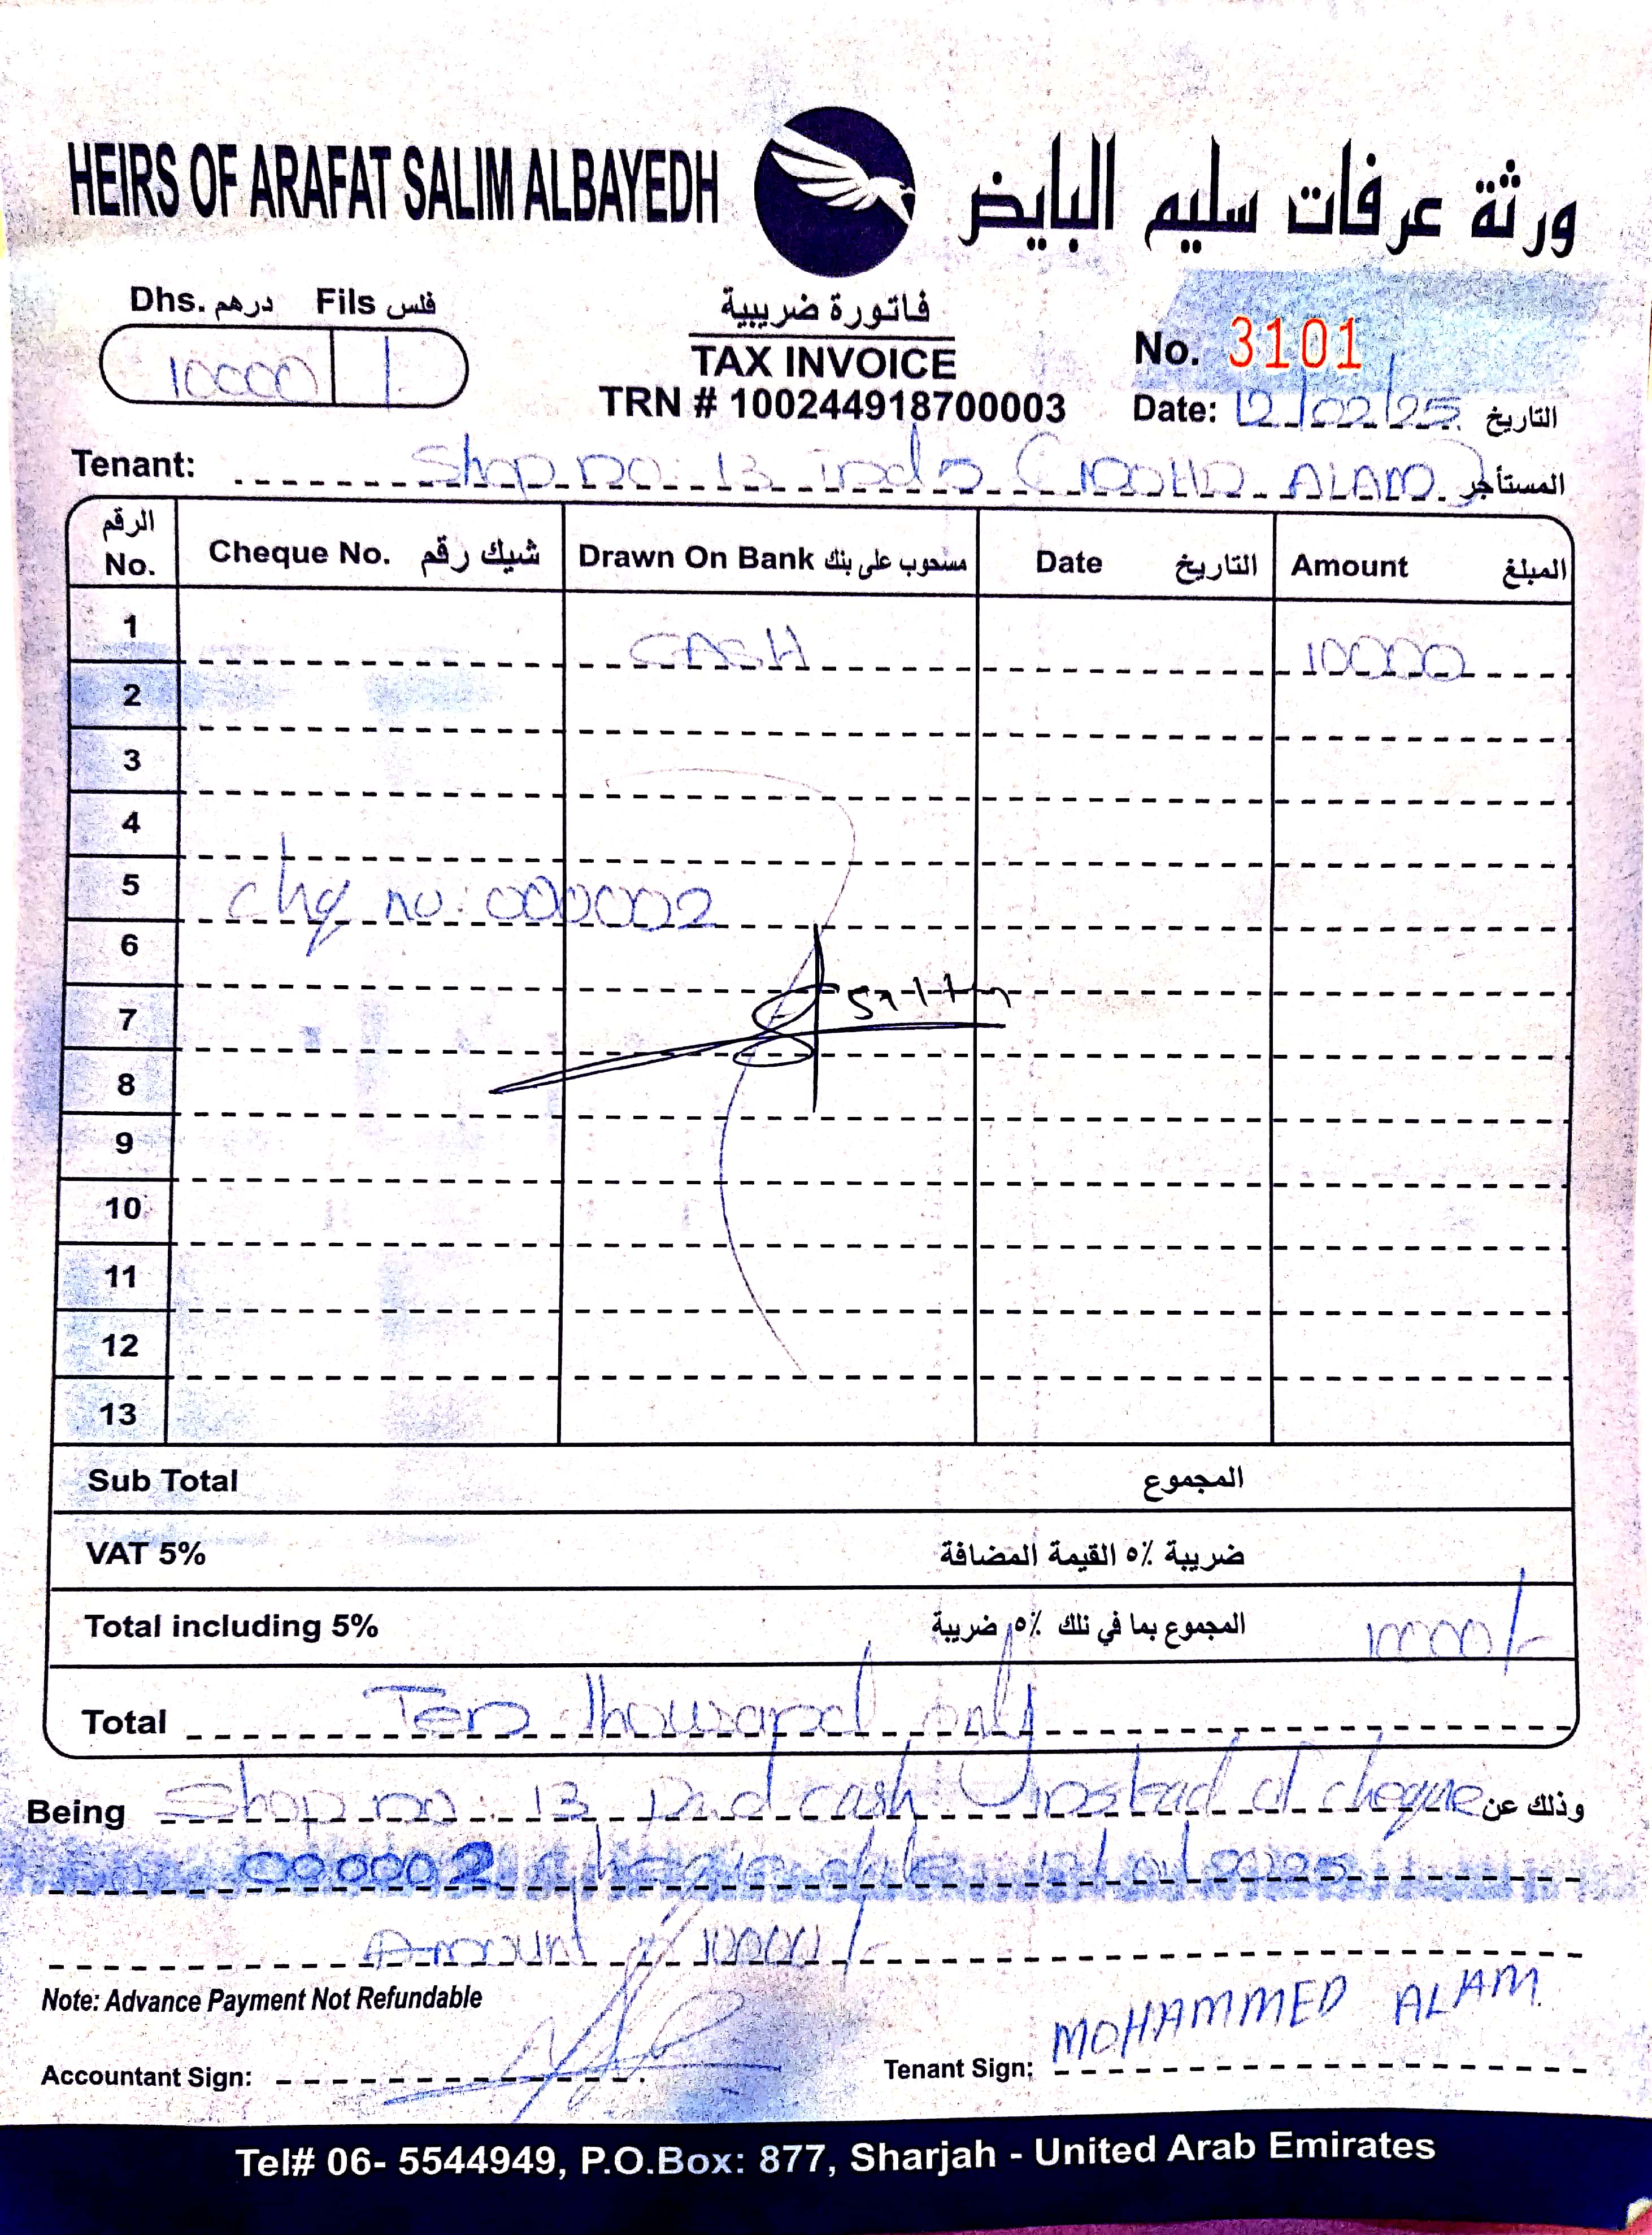 HEIRS OF ARAFAT SALIM ALBAYEDH ورثة عرفات سليم البايض
Dhs. درهم Fils فلس
10000 /
فاتورة ضريبية
TAX INVOICE
TRN # 100244918700003
No. 3101
Date: 12/02/25 التاريخ
Tenant: Shop no: 13 ind 5 (MOHD ALAM) المستأجر
الرقم No. Cheque No. شيك رقم Drawn On Bank مسحوب على بنك Date التاريخ Amount المبلغ
1 CASH 10000
2
3
4
5 chq no: 000002
6
7
8
9
10
11
12
13
Sub Total المجموع
VAT 5% ضريبة ٥٪ القيمة المضافة
Total including 5% المجموع بما في تلك ٥٪ ضريبة 10000/-
Total Ten thousand only
Being Shop no: 13 cash instead of cheque وذلك عن
000002 cheque date
Amount 10000/-
Note: Advance Payment Not Refundable
Accountant Sign:
Tenant Sign: MOHAMMED ALAM
Tel# 06- 5544949, P.O.Box: 877, Sharjah - United Arab Emirates